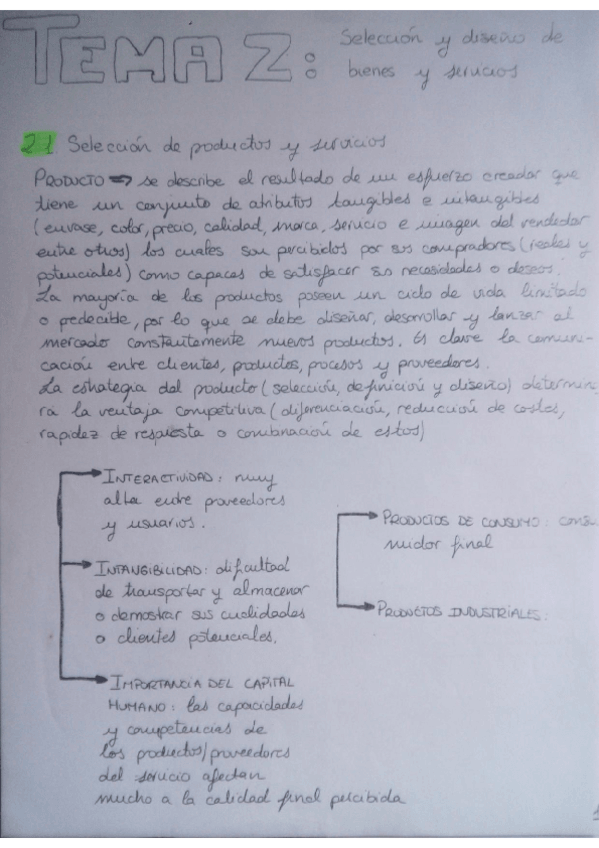 TEMA 2:
Selección y diseño de
bienes y servicios
2.1 Selección de productos y servicios
PRODUCTO => se describe el resultado de un esfuerzo creador que
tiene un conjunto de atributos tangibles e intangibles
(envase, color, precio, calidad, marca, servicio e imagen del vendedor
entre otros) los cuales son percibidos por sus compradores (reales y
potenciales) como capaces de satisfacer sus necesidades o deseos.
La mayoría de los productos poseen un ciclo de vida limitado
o predecible, por lo que se debe diseñar, desarrollar y lanzar al
mercado constantemente nuevos productos. Es clave la comuni-
cación entre clientes, productos, procesos y proveedores.
La estrategia del producto (selección, definición y diseño) determin
ra la ventaja competitiva (diferenciación, reducción de costes,
rapidez de respuesta o combinación de estos)
INTERACTIVIDAD: muy
alta entre proveedores
y usuarios.
INTANGIBILIDAD: dificultad
de transportar y almacenar
o demostrar sus cualidades
a clientes potenciales.
IMPORTANCIA DEL CAPITAL
HUMANO: las capacidades
y competencias de
los productos/proveedores
del servicio afectan
mucho a la calidad final percibida
PRODUCTOS DE CONSUMO: consu
midor final
PRODUCTOS INDUSTRIALES:
1